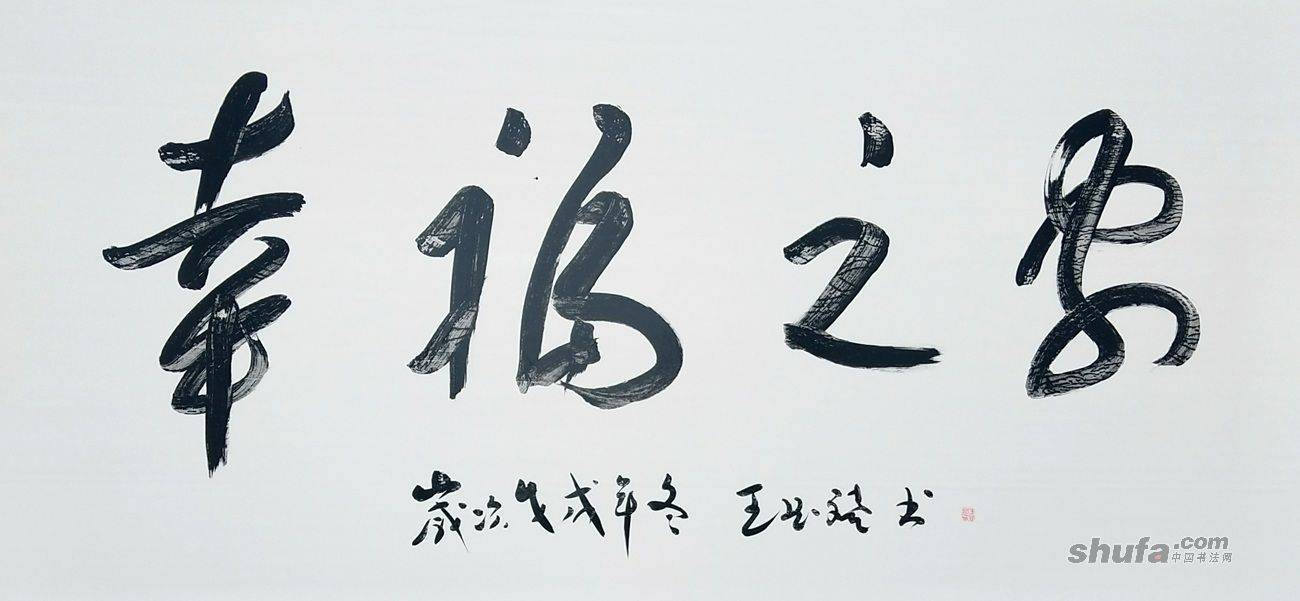 幸福之家
歲次戊戌年冬 王 书
shufa.com
中国书法网